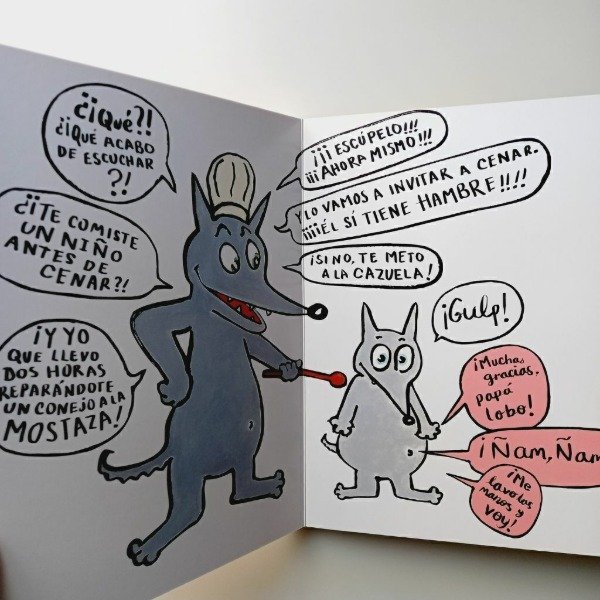 ¿¡Qué?!
¿¡QUÉ ACABO
DE ESCUCHAR
?!
¿¡TE COMISTE
UN NIÑO
ANTES DE
CENAR?!
¡Y YO
QUE LLEVO
DOS HORAS
PREPARÁNDOTE
UN CONEJO A LA
MOSTAZA!
¡¡¡ESCÚPELO!!!
¡¡¡AHORA MISMO!!!
Y LO VAMOS A INVITAR A CENAR.
¡¡¡¡ÉL SÍ TIENE HAMBRE!!!!
¡SI NO, TE METO
A LA CAZUELA!
¡Gulp!
¡Muchas
gracias,
papá
lobo!
¡ÑAM, ÑAM
¡Me
lavo las
manos y
voy!